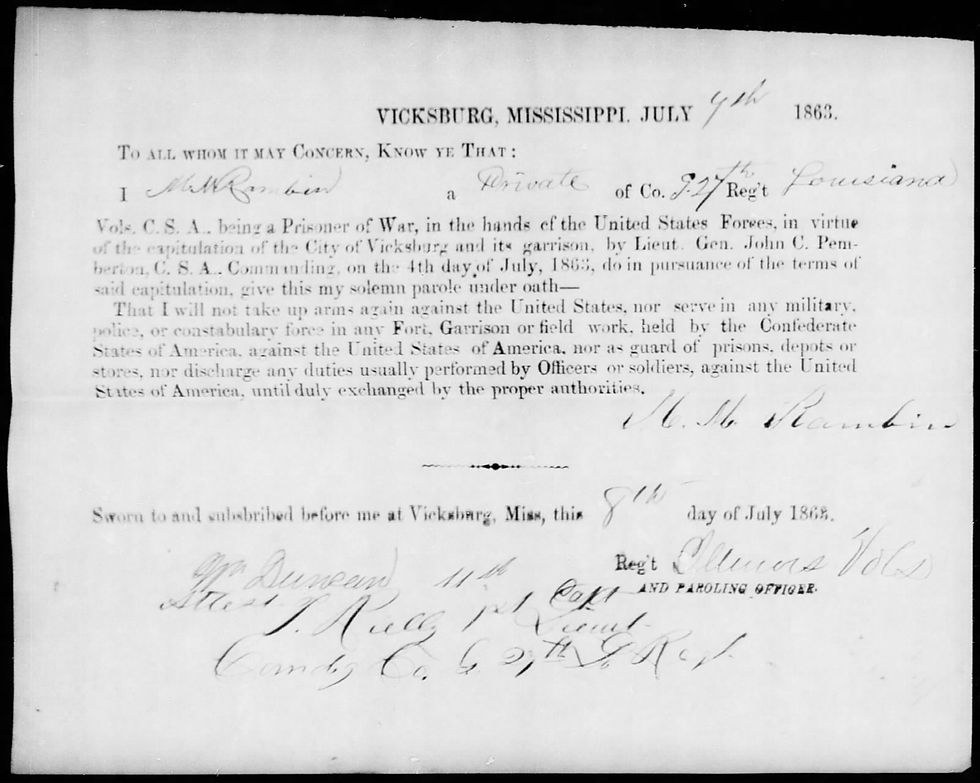 VICKSBURG, MISSISSIPPI. JULY 7th 1863.
TO ALL WHOM IT MAY CONCERN, KNOW YE THAT:
I M. M. Rambin a Private of Co. G. 27th Reg't Louisiana
Vols. C. S. A., being a Prisoner of War, in the hands of the United States Forces, in virtue
of the capitulation of the City of Vicksburg and its garrison, by Lieut. Gen. John C. Pem-
berton, C. S. A., Commanding, on the 4th day of July, 1863, do in pursuance of the terms of
said capitulation, give this my solemn parole under oath—
That I will not take up arms again against the United States, nor serve in any military,
police, or constabulary force in any Fort, Garrison or field work, held by the Confederate
States of America, against the United States of America, nor as guard of prisons, depots or
stores, nor discharge any duties usually performed by Officers or soldiers, against the United
States of America, until duly exchanged by the proper authorities.
M. M. Rambin
Sworn to and subsbribed before me at Vicksburg, Miss, this 8th day of July 1863.
Wm Duncan 11th Reg't Illinois Vols
Capt AND PAROLING OFFICER.
Attest
J. Kelly 1st Lieut
Comdg Co. G 27th La Regt.